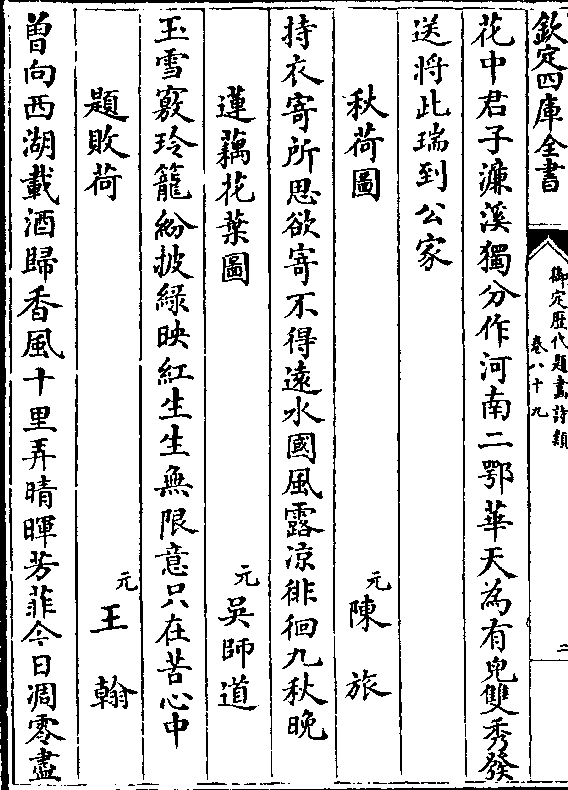 欽定四庫全書
御定歴代題畫詩類
卷八十九
二
花中君子濓溪獨分作河南二鄂華天為有兒雙秀發
送將此瑞到公家
秋荷圖
元
陳旅
持衣寄所思欲寄不得逺水國風露凉徘徊九秋晚
蓮藕花葉圖
元
吳師道
玉雪竅玲籠紛披緑映紅生生無限意只在苦心中
題敗荷
元
王翰
曽向西湖載酒歸香風十里弄晴暉芳菲今日凋零盡